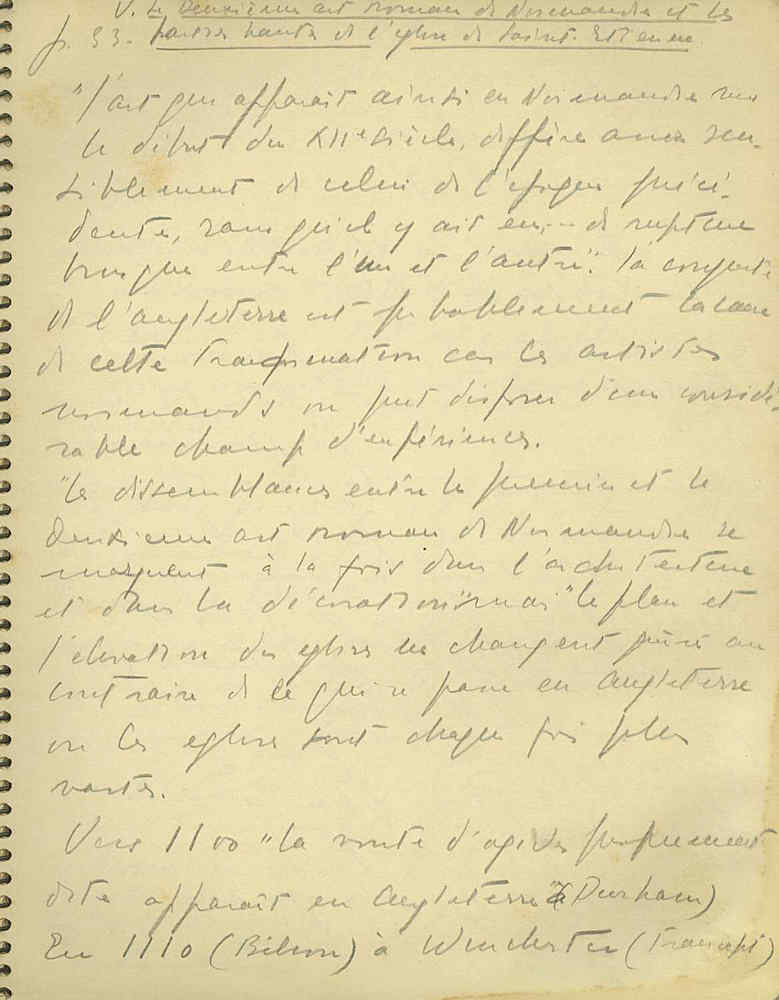 V. Le Deuxième art roman de Normandie et les
p. 53. parties hautes de l'église de Saint-Etienne.
"L'art qui apparaît ainsi en Normandie vers
le début du XIIe siècle, diffère assez sen-
siblement de celui de l'époque précé-
dente, sans qu'il y ait eu... de rupture
brusque entre l'un et l'autre". La conquête
de l'Angleterre est probablement la cause
de cette transformation car les artistes
normands on put disposer d'un considé-
rable champ d'expériences.
"Les dissemblances entre le premier et le
deuxième art roman de Normandie se
marquent à la fois dans l'architecture
et dans la décoration" mais "le plan et
l'élévation des églises ne changent guère au
contraire de ce qui se passe en Angleterre
où les églises sont chaque fois plus
vastes.
Vers 1100 "la voute d'ogives proprement
dite apparaît en Angleterre" (à Durham)
En 1110 (Bilson) à Winchester (Transept)